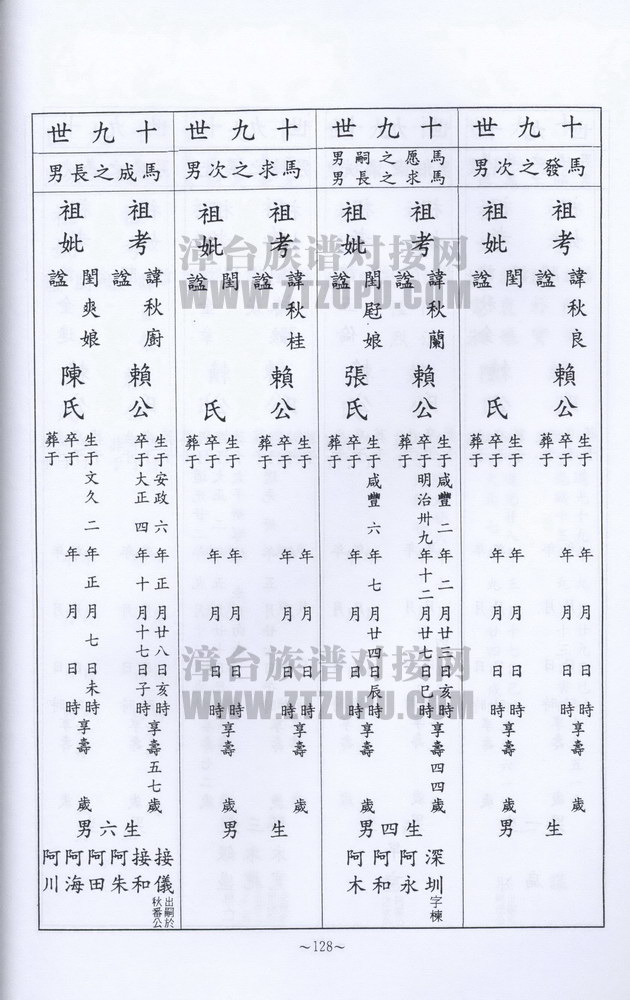 十九世
馬發之次男
祖考
諱秋良
諡
賴公
生于 年 月 日 時享壽 歲
卒于 年 月 日 時
葬于
祖妣
閨
諡
氏
生于 年 月 日 時享壽 歲
卒于 年 月 日 時
葬于
生 男
十九世
馬愿之嗣男
馬求之長男
祖考
諱秋蘭
諡
賴公
生于咸豐二年二月廿三日亥時享壽四四歲
卒于明治卅九年十二月廿七日巳時
葬于
祖妣
閨屘娘
諡
張氏
生于咸豐六年七月廿四日辰時享壽 歲
卒于 年 月 日 時
葬于
生四男
深圳字棟
阿永
阿和
阿木
十九世
馬求之次男
祖考
諱秋桂
諡
賴公
生于 年 月 日 時享壽 歲
卒于 年 月 日 時
葬于
祖妣
閨
諡
氏
生于 年 月 日 時享壽 歲
卒于 年 月 日 時
葬于
生 男
十九世
馬成之長男
祖考
諱秋廚
諡
賴公
生于安政六年正月廿八日亥時享壽五七歲
卒于大正四年十月十七日子時
葬于
祖妣
閨爽娘
諡
陳氏
生于文久二年正月七日未時享壽 歲
卒于 年 月 日 時
葬于
生六男
接儀出嗣於秋番公
接和
阿朱
阿田
阿海
阿川
~128~
漳台族谱对接网
WWW.ZTZUPU.COM
漳台族谱对接网
WWW.ZTZUPU.COM